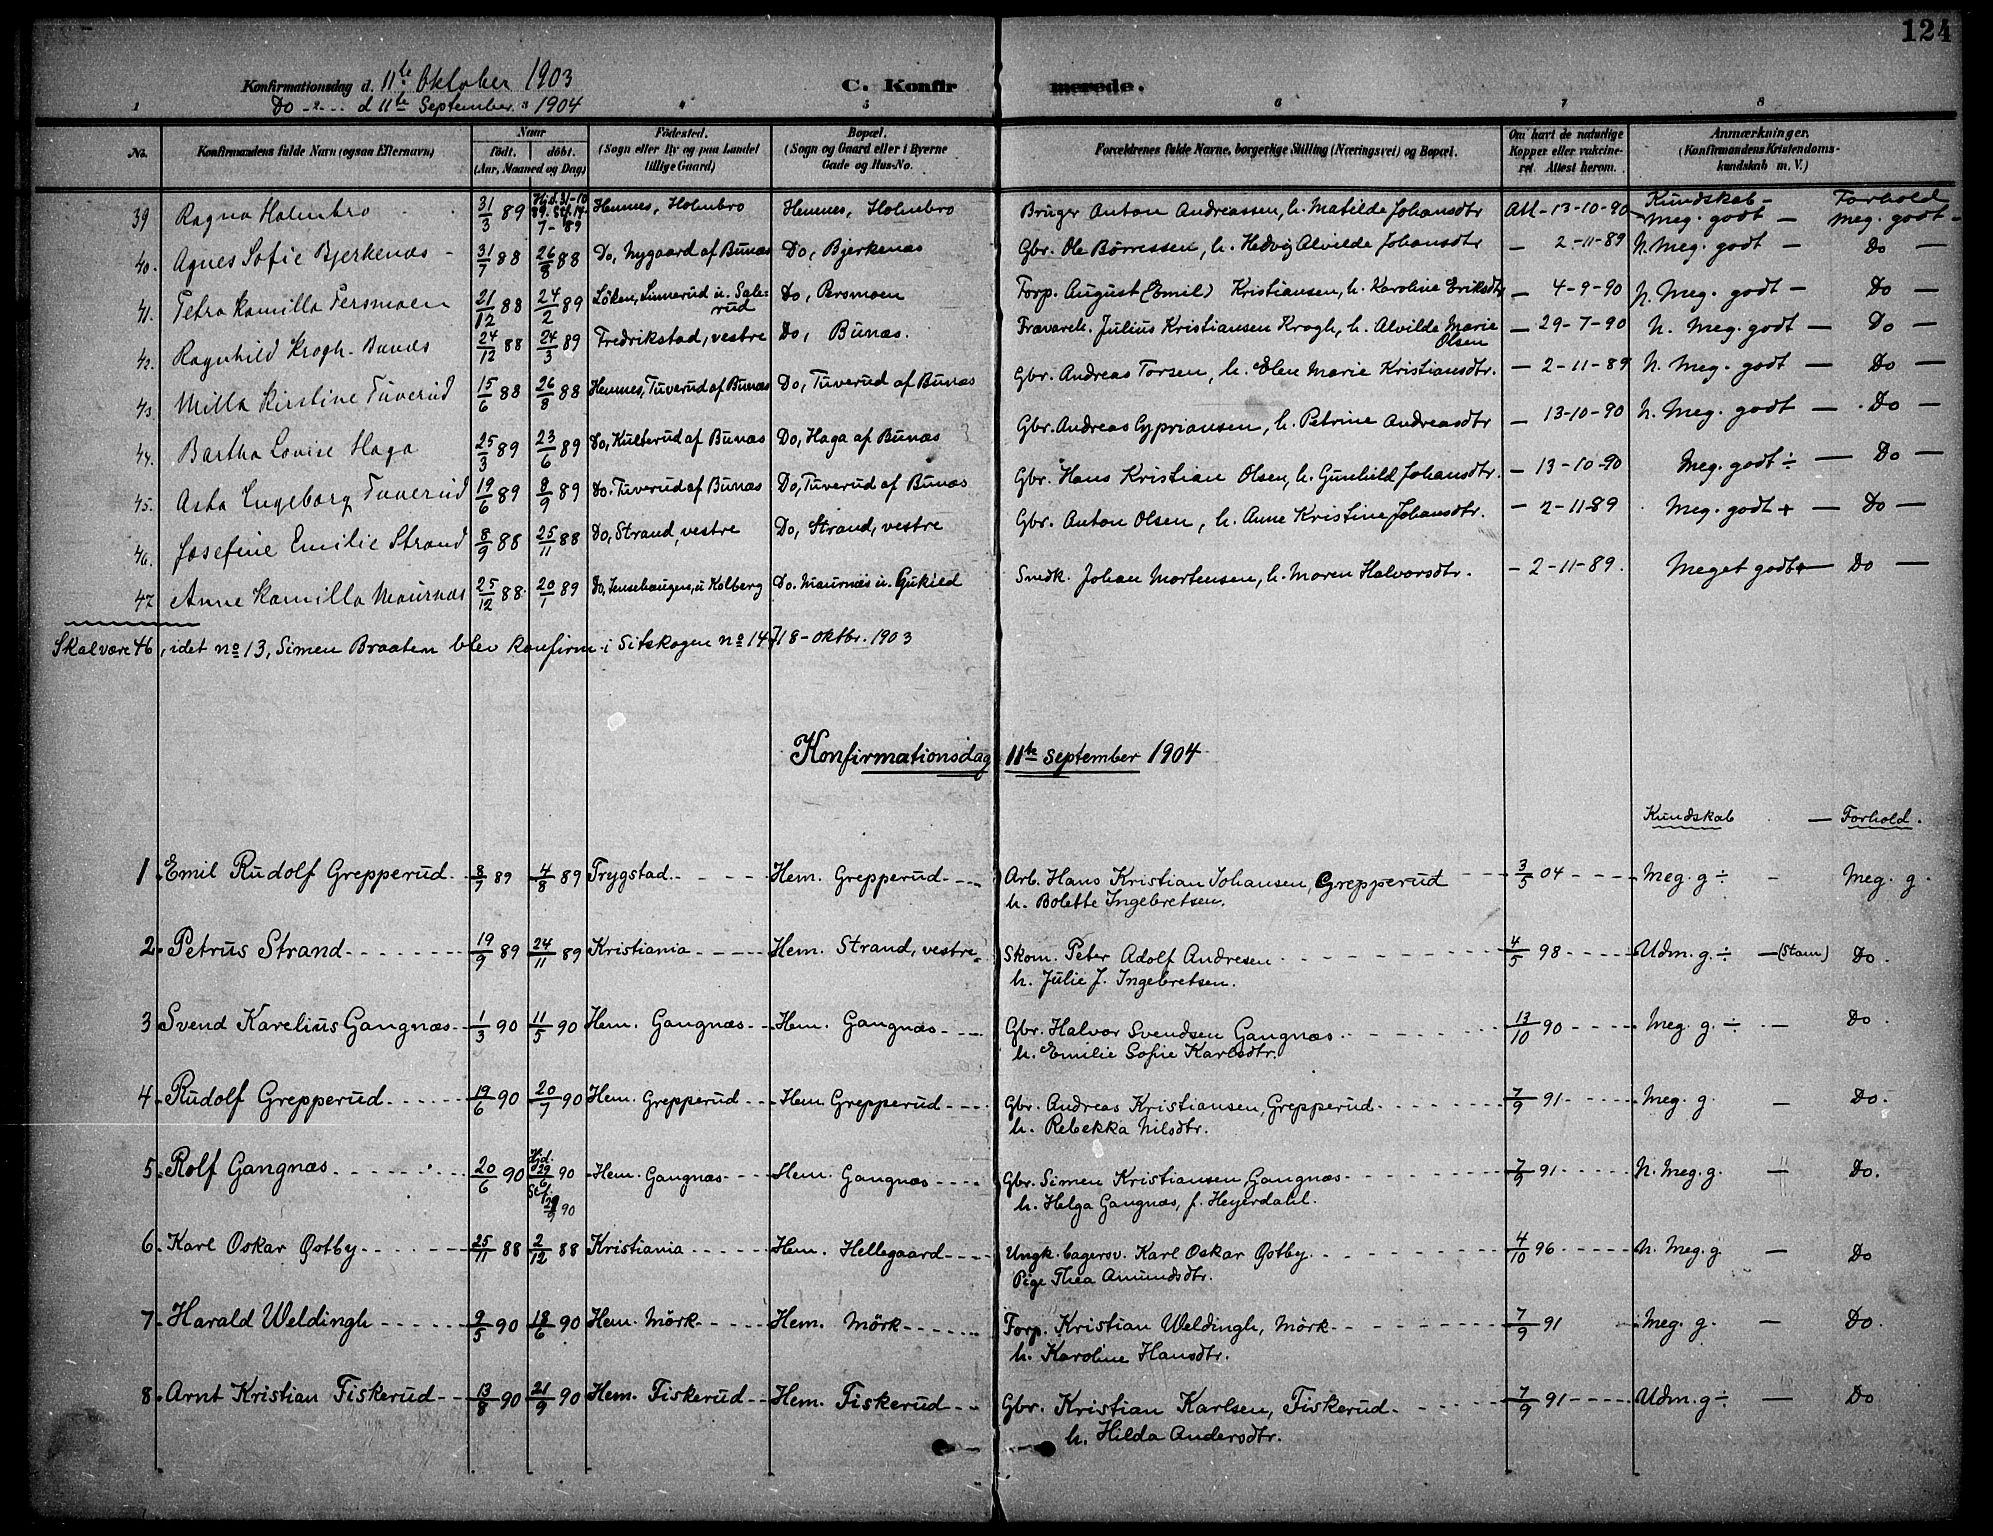 124
Konfirmationsdag d. 11te Oktober 1903
Do d 11te September 1904
C. Konfirmerede.
1 4 5 6 7 8
No.
Konfirmandens fulde Navn (ogsaa Efternavn)
Naar
født. døbt.
(Aar, Maaned og Dag)
Fødested.
(Sogn eller By og paa Landet tillige Gaard)
Bopæl.
(Sogn og Gaard eller i Byerne Gade og Hus-No.
Forældrenes fulde Navne, borgerlige Stilling (Næringsvei) og Bopæl.
Om havt de naturlige Kopper eller vaccineret. Attest herom.
Anmærkninger.
(Konfirmandens Kristendomskundskab m. V.)
Kundskab - Forhold
39 Ragna Holmbro 31/3 89 Hjd. 31-10 89. Hemnes, Holmbro Hemnes, Holmbro Bruger Anton Andreassen, h. Matilde Johansdtr Att - 13-10-90 meg. godt - meg. godt -
40. Agnes Sofie Bjerkenæs - 31/7 88 26/8 88 Do, Nygaard af Bunæs Do, Bjerkenæs Gbr. Ole Børressen, h. Hedvig Alvilde Johansdtr - 2-11-89 N. Meg. godt - Do -
41. Petra Kamilla Persmoen 21/12 88 24/2 89 Löken, Linnerud u. Sale- rud Do, Persmoen Forp. August (Emil) Kristiansen, h. Karoline Eriksdtr - 4-9-90 N. Meg. godt - Do -
42. Ragnhild Krogh-Bunæs 24/12 88 24/3 89 Fredrikstad, vestre Do, Bunæs. Fravareh. Julius Kristiansen Krogh, h. Alvilde Marie Olsen - 29-7-90 N. Meg. godt - Do -
43 Milla Kirstine Tuverud 15/6 88 26/8 88 Hemnes, Tuverud af Bunæs Do, Tuverud af Bunæs Gbr. Andreas Torsen, h. Elen Marie Kristiansdtr. - 2-11-89 N. Meg. godt - Do -
44. Bartha Lovise Haga 25/3 89 23/6 89 Do, Kulterud af Bunæs Do, Haga af Bunæs Gbr. Andreas Cypriansen, h. Petrine Andreasdtr - 13-10-90 N. Meg. godt - Do -
45. Asta Engeborg Tuverud 19/6 89 8/9 89 Do. Tuverud af Bunæs Do, Tuverud af Bunæs Gbr. Hans Kristian Olsen, h. Gunhild Johansdtr. - 13-10-90 Meg. godt ÷ - Do -
46. Josefine Emilie Strand 8/9 88 25/11 88 Do, Strand, vestre Do, Strand, vestre Gbr. Anton Olsen, h. Anne Kristine Johansdtr. - 2-11-89 Meg. godt + - Do -
47 Anne Kamilla Maurnæs 25/12 88. 20/1 89 Do, Jensehaugen, u Kolberg Do. Maurnæs u. Gukild Smdk. Johan Mortensen, h. Maren Halvorsdtr. - 2-11-89. Meget godt + - Do -
Skal være 46, idet no 13, Simen Braaten blev konfirm i Sitskogen no 14 18-oktbr. 1903
Konfirmationsdag 11te September 1904
Kundskab - Forhold.
1. Emil Rudolf Grepperud 8/7 89 4/8 89 Trygstad. Hem. Grepperud Arb. Hans Kristian Johansen, Grepperud 3/5 04 Meg. g ÷ - Meg. g.
h. Bolette Ingebretsen.
2. Petrus Strand 19/9 89 24/11 89 Kristiania Hem. Strand, vestre Skom. Peter Adolf Andresen 4/5 98 Udm. g. ÷ - (Stam) Do.
h. Julie J. Ingebretsen.
3 Svend Karelius Gangnæs 1/3 90 11/5 90 Hem. Gangnæs Hem. Gangnæs Gbr. Halvor Svendsen Gangnæs 13/10 90 Meg. g ÷ - Do.
h. Emilie Sofie Karlsdtr.
4. Rudolf Grepperud 19/6 90 20/7 90 Hem. Grepperud Hem Grepperud Gbr. Andreas Kristiansen, Grepperud 7/9 91 Meg. g. - Do.
h. Rebekka Nilsdtr.
5. Rolf Gangnæs 20/6 90 Hjd. 29/6 90 Hem. Gangnæs Hem. Gangnæs Gbr. Simen Kristiansen, Gangnæs 7/9 91 N. Meg. g. - Do.
h. Helga Gangnæs, f. Heyerdahl.
6. Karl Oskar Qotby 25/11 88 2/12 88 Kristiania Hem. Hellegaard Ungk. bagersv. Karl Oskar Qotby 4/10 96 N. Meg. g - Do
Pige Thea Amundsdtr.
7. Harald Weldingh 9/5 90 18/6 90 Hem. Mörk Hem. Mörk Forp. Kristian Weldingh, Mörk 7/9 91 Meg. g. - Do.
h. Karoline Hansdtr.
8. Arnt Kristian Fiskerud 13/8 90 21/9 90 Hem. Fiskerud Hem. Fiskerud Gbr. Kristian Karlsen, Fiskerud 7/9 91 Udm. g ÷ - Do
h. Hilda Andersdtr.